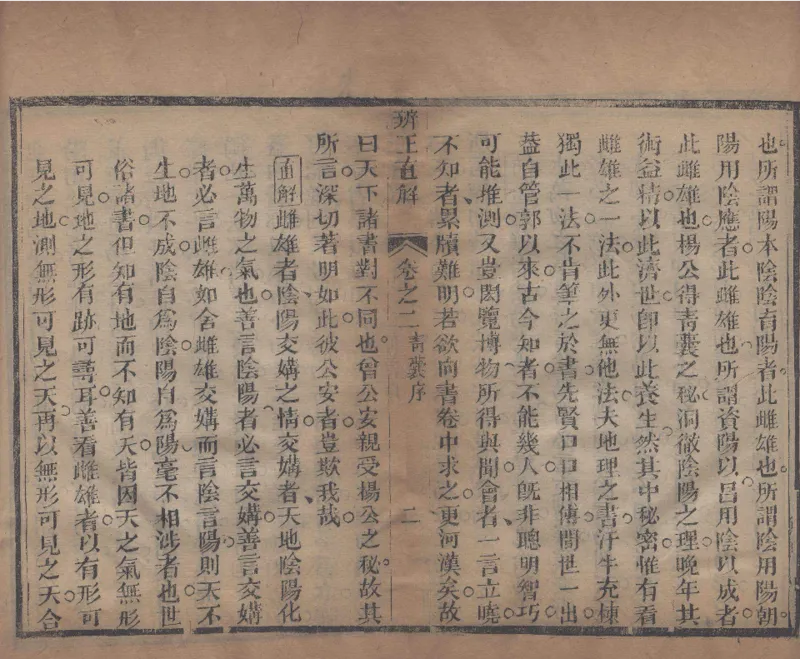 也所謂陽本陰陰育陽者此雌雄也所謂陰用陽朝
陽用陰應者此雌雄也所謂資陽以昌用陰以成者
此雌雄也楊公得青囊之秘洞徹陰陽之理晚年其
術益精以此濟世即以此養生然其中秘密惟有看
雌雄之一法此外更無他法夫地理之書汗牛充棟
獨此一法不肯筆之於書先賢口口相傳間世一出
葢自管郭以來古今知者不能幾人旣非聰明智巧
可能推測又豈閎覽博物所得與聞會者一言立曉
不知者累牘難明若欲向書卷中求之更河漢矣故
辨正直解 卷之二 青囊序 二
曰天下諸書對不同也曾公安親受揚公之秘故其
所言深切著明如此彼公安者豈欺我哉
直解雌雄者陰陽交媾之情交媾者天地陰陽化
生萬物之氣也善言陰陽者必言交媾善言交媾
者必言雌雄如舍雌雄交媾而言陰言陽則天不
生地不成陰自爲陰陽自爲陽毫不相涉者也世
俗諸書但知有地而不知有天皆因天之氣無形
可見地之形有跡可尋耳善看雌雄者以有形可
見之地測無形可見之天再以無形可見之天合